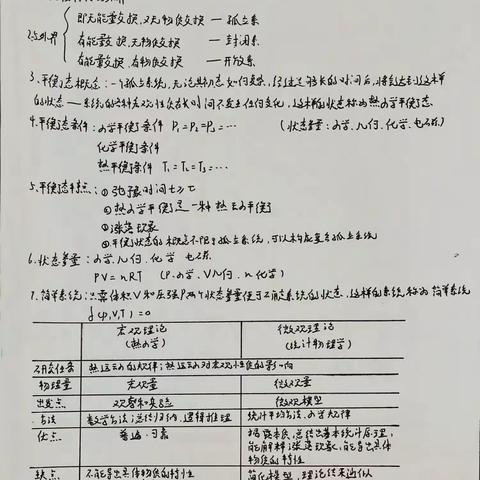 即无能量交换,又无物质交换 — 孤立系
2.与外界
有能量交换,无物质交换 — 封闭系
有能量交换,有物质交换 — 开放系
3.平衡态概念:一个孤立系统,无论其初态如何复杂,经过足够长的时间后,将会达到这样
的状态——系统的各种宏观性质在长时间不发生任何变化,这样的状态称为热力学平衡态.
4.平衡态条件:力学平衡条件 P₁=P₂=P₃=⋯ (状态参量:力学.几何.化学.电磁)
化学平衡条件
热平衡条件 T₁=T₂=T₃=⋯
5.平衡态特点:①弛豫时间t≥τ
②热力学平衡是一种热动平衡
③涨落现象
④平衡状态的概念不限于孤立系统,可以构成复合孤立系统
6.状态参量:力学.几何.化学 电磁
PV=nRT (P.力学.V几何.n化学)
7.简单系统:只需体积V和压强P两个状态参量便可以确定系统的状态,这样的系统称为简单系统
f(P,V,T)=0
宏观理论 微观理论
(热力学) (统计物理学)
研究任务 热运动的规律;热运动对宏观性质的影响
物理量 宏观量 微观量
出发点 观察和实验 微观模型
方法 数学方法;总结归纳.逻辑推理 统计平均方法.力学规律
优点 普遍.可靠 揭露本质,总结出基本统计原理,
能解释涨落现象,能导出具体
物质的特性
缺点 不能导出具体物质的特性 简化模型,理论结果近似